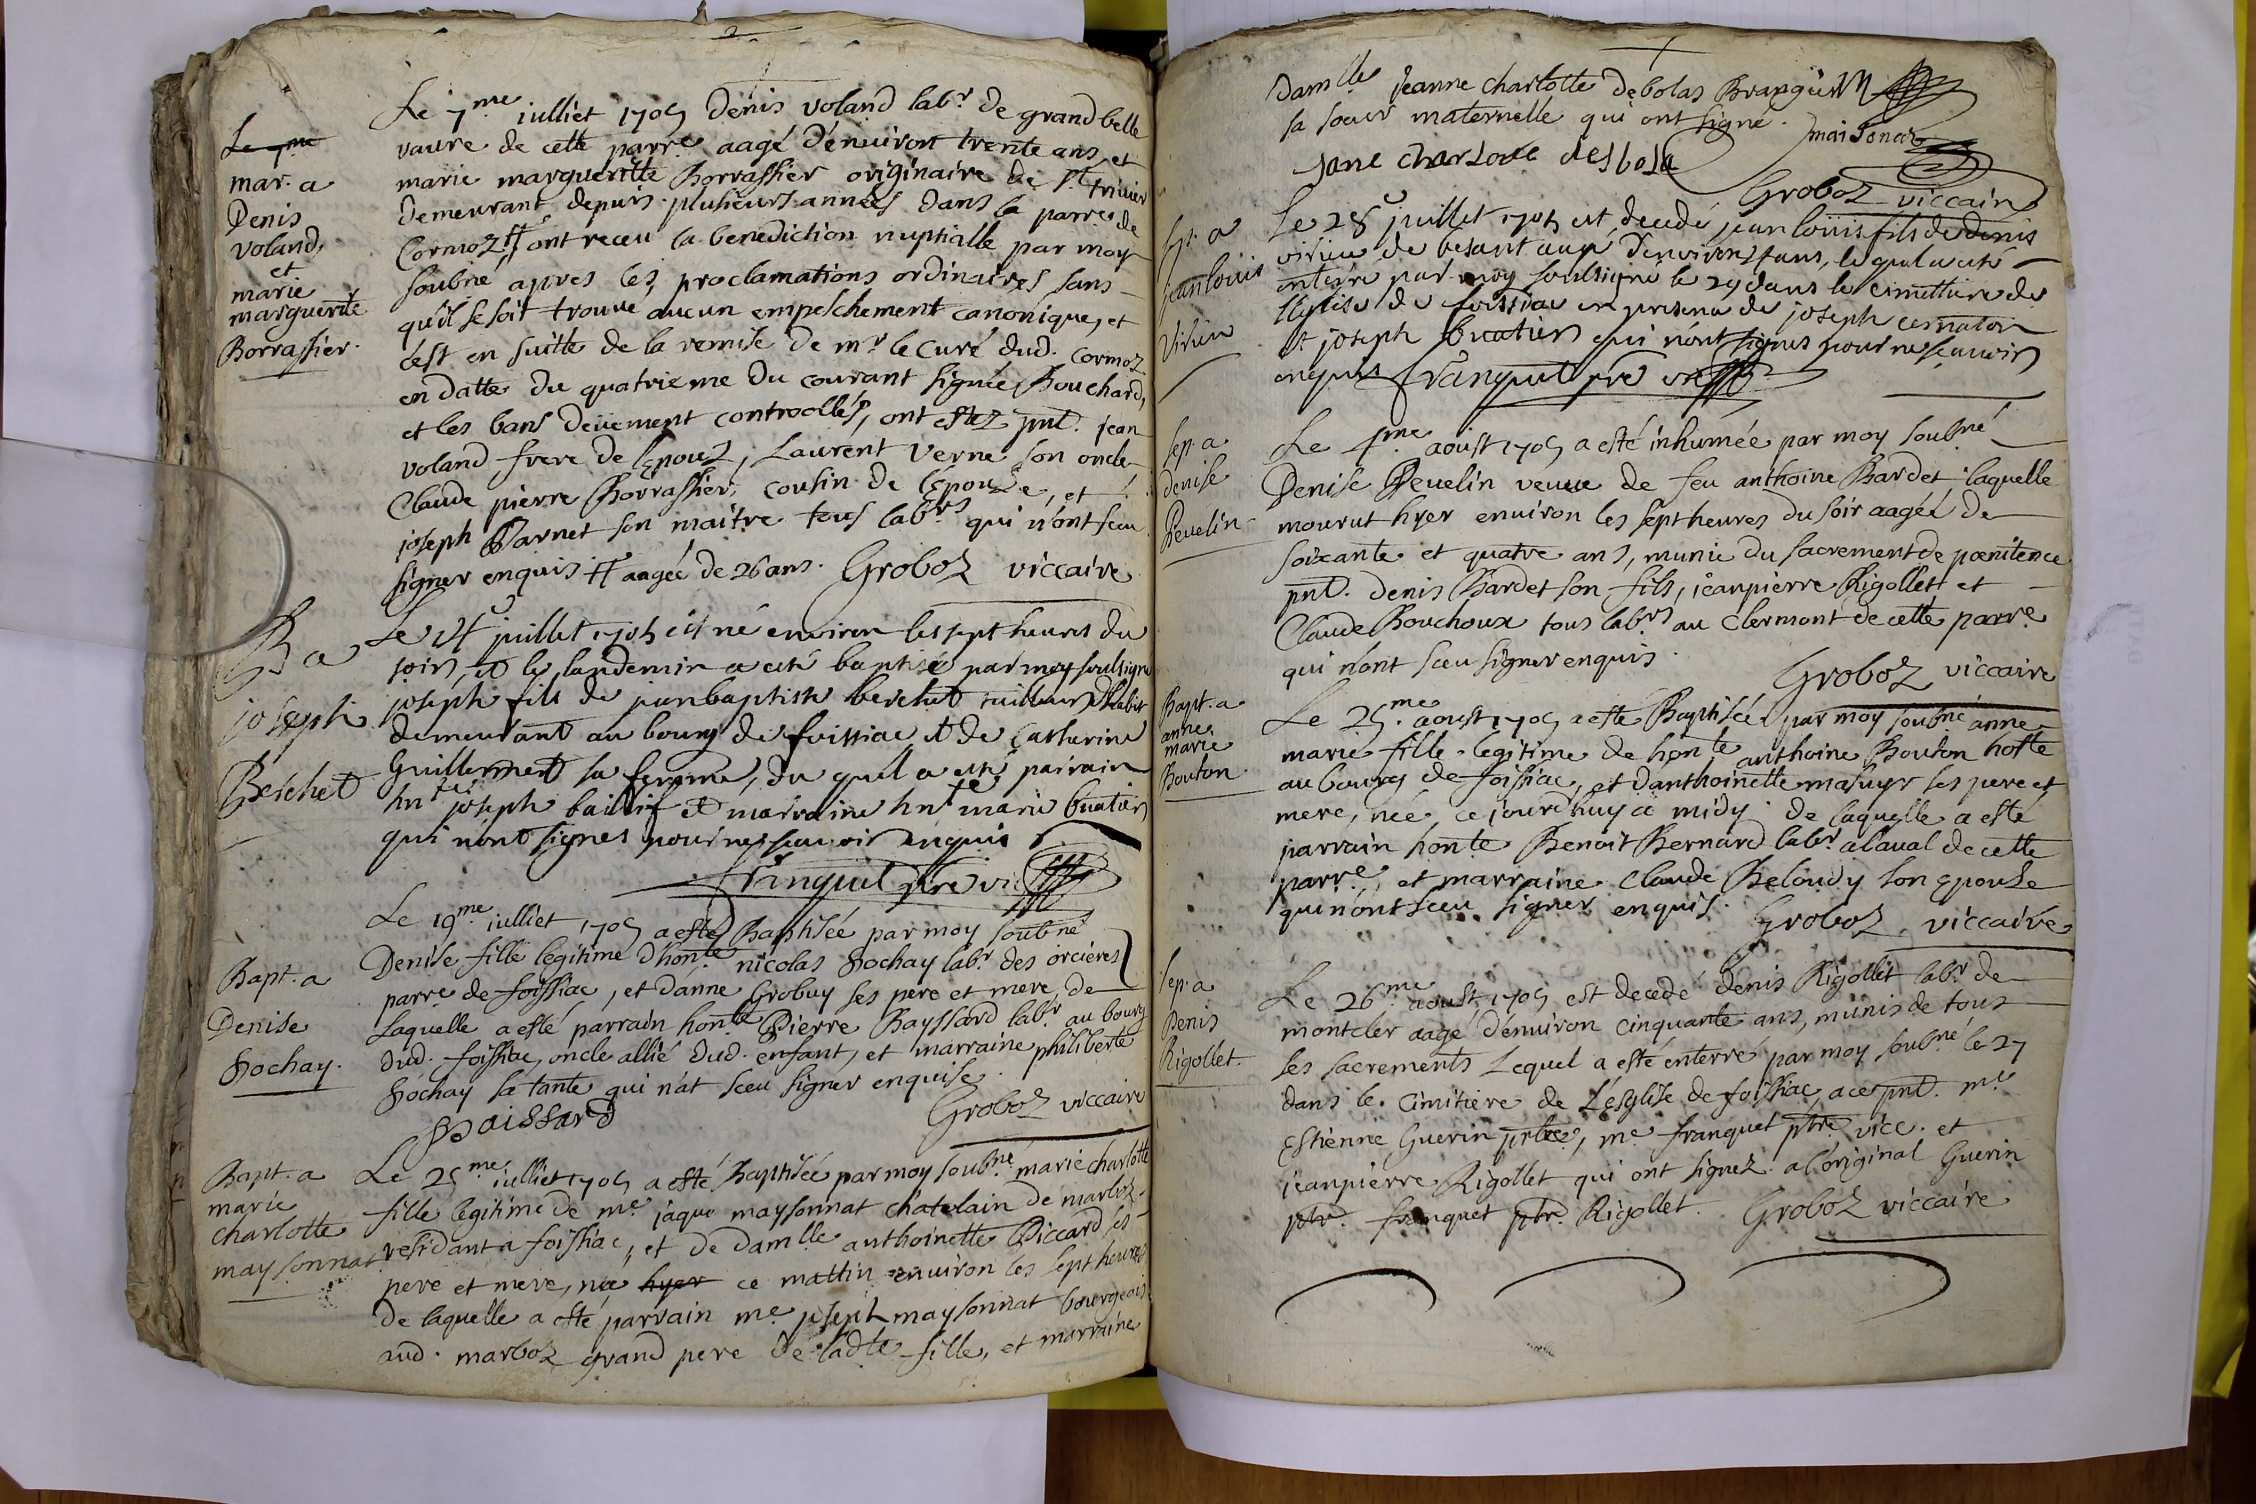 Le 7me
mar. a
Denis
voland,
et
marie
marguerite
Borrassier.
Le 7me iulliet 1705 Denis voland labr de grand belle
vavre de cette parre aagé d'enuiron trente ans, et
marie marguerite Borrassier originaire de st trivier
demeurant depuis plusieurs années dans la parre de
Cormoz ++ ont receu la benediction nuptialle par moy
soubné apres les proclamations ordinaires sans
qu'il se soit trouve aucun empeschement canonique, et
c'est en suitte de la remise de mr le curé dud. Cormoz
en datte du quatrieme du courant signée Bouchard,
et les bans deüement controllés, ont estez pnt. jean
voland frere de l'epoux, Laurent Verne son oncle
Claude pierre Borrassier, cousin de l'epouse, et
joseph Varnet son maitre tous labrs qui n'ont sceu
signer enquis ++ aagée de 26 ans. Groboz viccaire
B a
joseph
Berchet
Le juillet 1705 est né environ les sept heures du
soir, et le landemin a esté baptisé par moy soulsigné
joseph fils de jean baptiste berchet tailleur d'habit
demeurant au bourg de foissiac et de Catherine
Guillermet sa femme, du quel a esté pairain
hnte joseph baillif et marraine hnte marie buatier
qui n'ont signés pour ne scavoir enquis
franquet ptre vic
Bapt. a
Denise
Sochay.
Le 19me iulliet 1705 a esté Baptisée par moy soubné
Denise fille legitime d'honte nicolas Sochay labr des orcieres
parre de foissiac, et d'anne Grobuy ses pere et mere, de
laquelle a esté parrain honte Pierre Bayssard labr au bourg
dud. foissiac, oncle allié dud. enfant, et marraine philiberte
Sochay sa tante qui n'at sceu signer enquise.
Baissard
Groboz viccaire
Bapt. a
marie
charlotte
maysonnat
Le 25me iulliet 1705 a esté Baptisée par moy soubné marie charlotte
fille legitime de me jaque maysonnat chatelain de marboz
residant a foissiac, et de damlle anthoinette Piccard ses
pere et mere, née hyer ce mattin enuiron les sept heures
de laquelle a esté parrain me joseph maysonnat bourgeois
aud. marboz grand pere de ladte fille, et marraine
damlle jeanne charlotte debolas
sa soeur maternelle qui ont signé.
maisonat
jane charlotte desbola
Groboz viccaire
Sep. a
jean louis
Virieu
Le 28 juillet 1705 est decedé jean loüis fils de denis
virieu de besant aagé d'environ ans, le quel a esté
enterré par moy soulsigné le 29 dans le cimettiere de
l'eglise de foissiac en presence de joseph
et joseph buatier qui n'ont signés pour ne scavoir
enquis franquet ptre vic
Sep. a
denise
Revelin
Le me aoust 1705 a esté inhumée par moy soubné
Denise Revelin veuve de feu anthoine Bardet, laquelle
mourut hyer environ les sept heures du soir aagée de
soixante et quatre ans, munie du sacrement de pœnitence
pnt. denis Bardet son fils, jeanpierre Rigollet et
Claude Bouchoux tous labrs au Clermont de cette parre
qui n'ont sceu signer enquis.
Groboz viccaire
Bapt. a
anne
marie
Bouton
Le 25me aoust 1705 a esté Baptisée par moy soubné anne
marie fille legitime de honte anthoine Bouton hoste
au bourg de foissiac, et d'anthoinette masuyr ses pere et
mere, née ce jourd'huy a midy. de laquelle a esté
parrain honte Benoit Bernard labr a laual de cette
parre, et marraine Claude Beloudy son epouse
qui n'ont sceu signer enquis.
Groboz viccaire
Sep. a
Denis
Rigollet.
Le 26me aoust 1705 est decedé denis Rigollet labr de
montcler aagé d'enuiron cinquante ans, munis de tous
ses sacrements Lequel a esté enterré par moy soubné le 27
dans le cimitiere de l'esglise de foissiac, a ce pnt. me
Estienne Guerin prtre, me franquet ptre vice. et
jeanpierre Rigollet qui ont signez a l'original Guerin
ptr. franquet ptr. Rigollet. Groboz viccaire